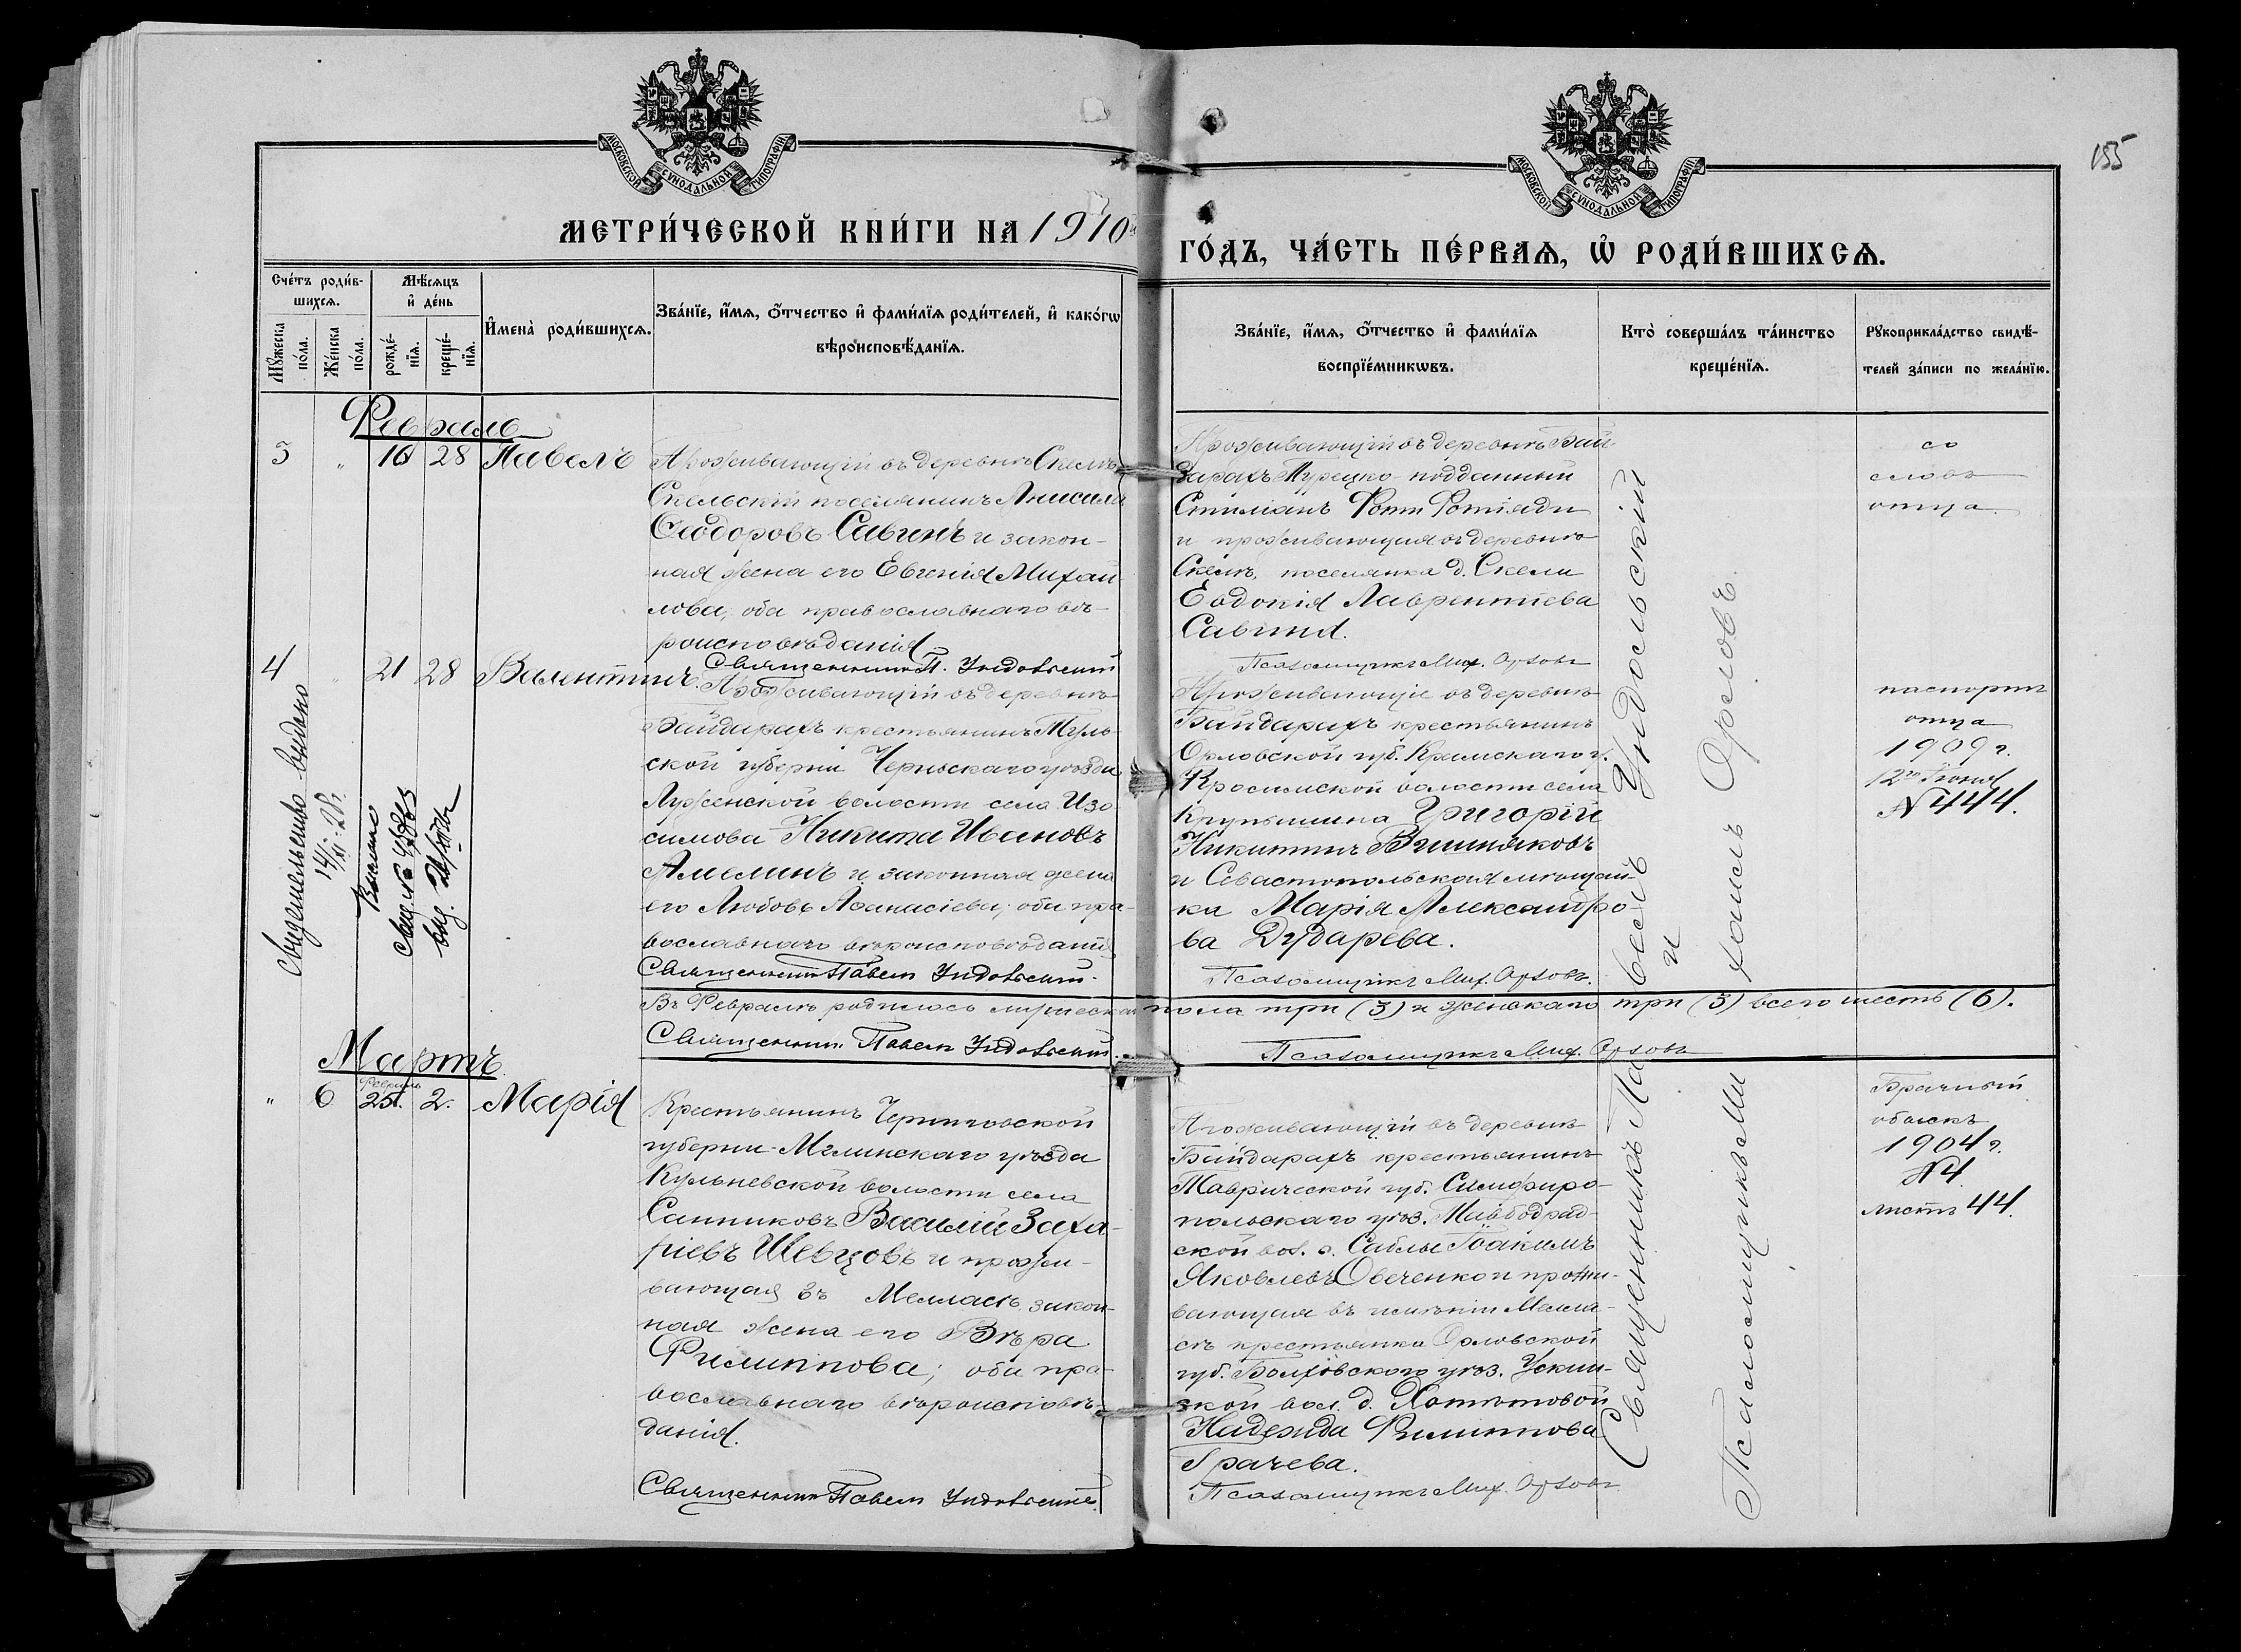 155
МОСКОВСКОЙ СѴНОДАЛЬНОЙ ТИПОГРАФІИ
МОСКОВСКОЙ СѴНОДАЛЬНОЙ ТИПОГРАФІИ
МЕТРИ́ЧЕСКОЙ КНИ́ГИ НА 1910
ГО́ДЪ, ЧА́СТЬ ПЕ́РВАѦ, Ѡ҆ РОДИ́ВШИХСѦ.
Сче́тъ роди́в-
шихсѧ.
Мꙋ́жеска
по́ла.
Же́нска
по́ла.
Мѣ́сѧцъ
и҆ де́нь
рожде́-
нїѧ.
креще́-
нїѧ.
И҆мена̀ роди́вшихсѧ.
Зва́нїе, и҆́мѧ, ѻ҆́тчество и҆ фами́лїѧ роди́телей, и҆ како́гѡ
вѣроисповѣ́данїѧ.
Зва́нїе, и҆́мѧ, ѻ҆́тчество и҆ фами́лїѧ
воспрїе́мникѡвъ.
Кто̀ соверша́лъ та́инство
креще́нїѧ.
Рꙋкоприкла́дство свидѣ́-
телей за́писи по жела́нїю.
Февраль
3 " 16 28 Павелъ
Проживающій въ деревнѣ Скелѣ
Скельскій поселянинъ Анисимъ
Ѳеодоровъ Савинъ и закон-
ная жена его Евгенія Михай-
лова, оба православнаго вѣ-
роисповѣданія
Священникъ П. Ундольскій
Проживающій въ деревнѣ Бай-
дарахъ Турецко-подданный
Стиліанъ Фотіади
и проживающая въ деревнѣ
Скелѣ, поселянка д. Скели
Евдокія Лаврентіева
Савина.
Псаломщикъ Мих. Орловъ
со
словъ
отца
4 " 21 28 Валентинъ.
Проживающій въ деревнѣ
Байдарахъ крестьянинъ Туль-
ской губерніи Чернскаго уѣзда
Луженской волости села Изо-
симова Никита Ивановъ
Амелинъ и законная жена
его Любовь Аѳанасіева; оба пра-
вославнаго вѣроисповѣданія
Священникъ Павелъ Ундольскій.
Проживающіе въ деревнѣ
Байдарахъ крестьянинъ
Орловской губ. Кромскаго у.
волости села
Григорій
Никитинъ Вишняковъ
и Севастопольская мѣщан-
ка Марія Александро-
ва Дударева.
Псаломщикъ Мих. Орловъ.
паспортъ
отца
1909 г.
12го Іюня
№ 444.
Свидетельство выдано
14/XI-28г.
Выслано
В Февралѣ родилось мужеска пола три (3) и женскаго три (3) всего шесть (6).
Священникъ Павелъ Ундольскій.
Псаломщикъ Мих. Орловъ
Мартъ
" 6 Февраль 25. 2. Марія
Крестьянинъ Черниговской
губерніи Мглинскаго уѣзда
Кульневской волости села
Санниковъ Василій Заха-
ріевъ Шевцовъ и прожи-
вающая въ Мелласѣ закон-
ная жена его Вѣра
Филиппова; оба пра-
вославнаго вѣроисповѣ-
данія.
Священникъ Павелъ Ундольскій.
Проживающій въ деревнѣ
Байдарахъ крестьянинъ
Таврической губ. Симферо-
польскаго уѣз.
ской вол. д. Саблы Іоакимъ
Яковлевъ Овеченко и прожи-
вающая въ имѣніи Мелла-
съ крестьянка Орловской
губ. Болховского уѣз.
ской вол. д. Хотѣтовой
Надежда Филиппова
Грачева.
Псаломщикъ Мих. Орловъ
Священникъ Павелъ Ундольскій
и
Псаломщикъ Михаилъ Орловъ.
Брачный
обыскъ
1904 г.
№ 4
листъ 44.